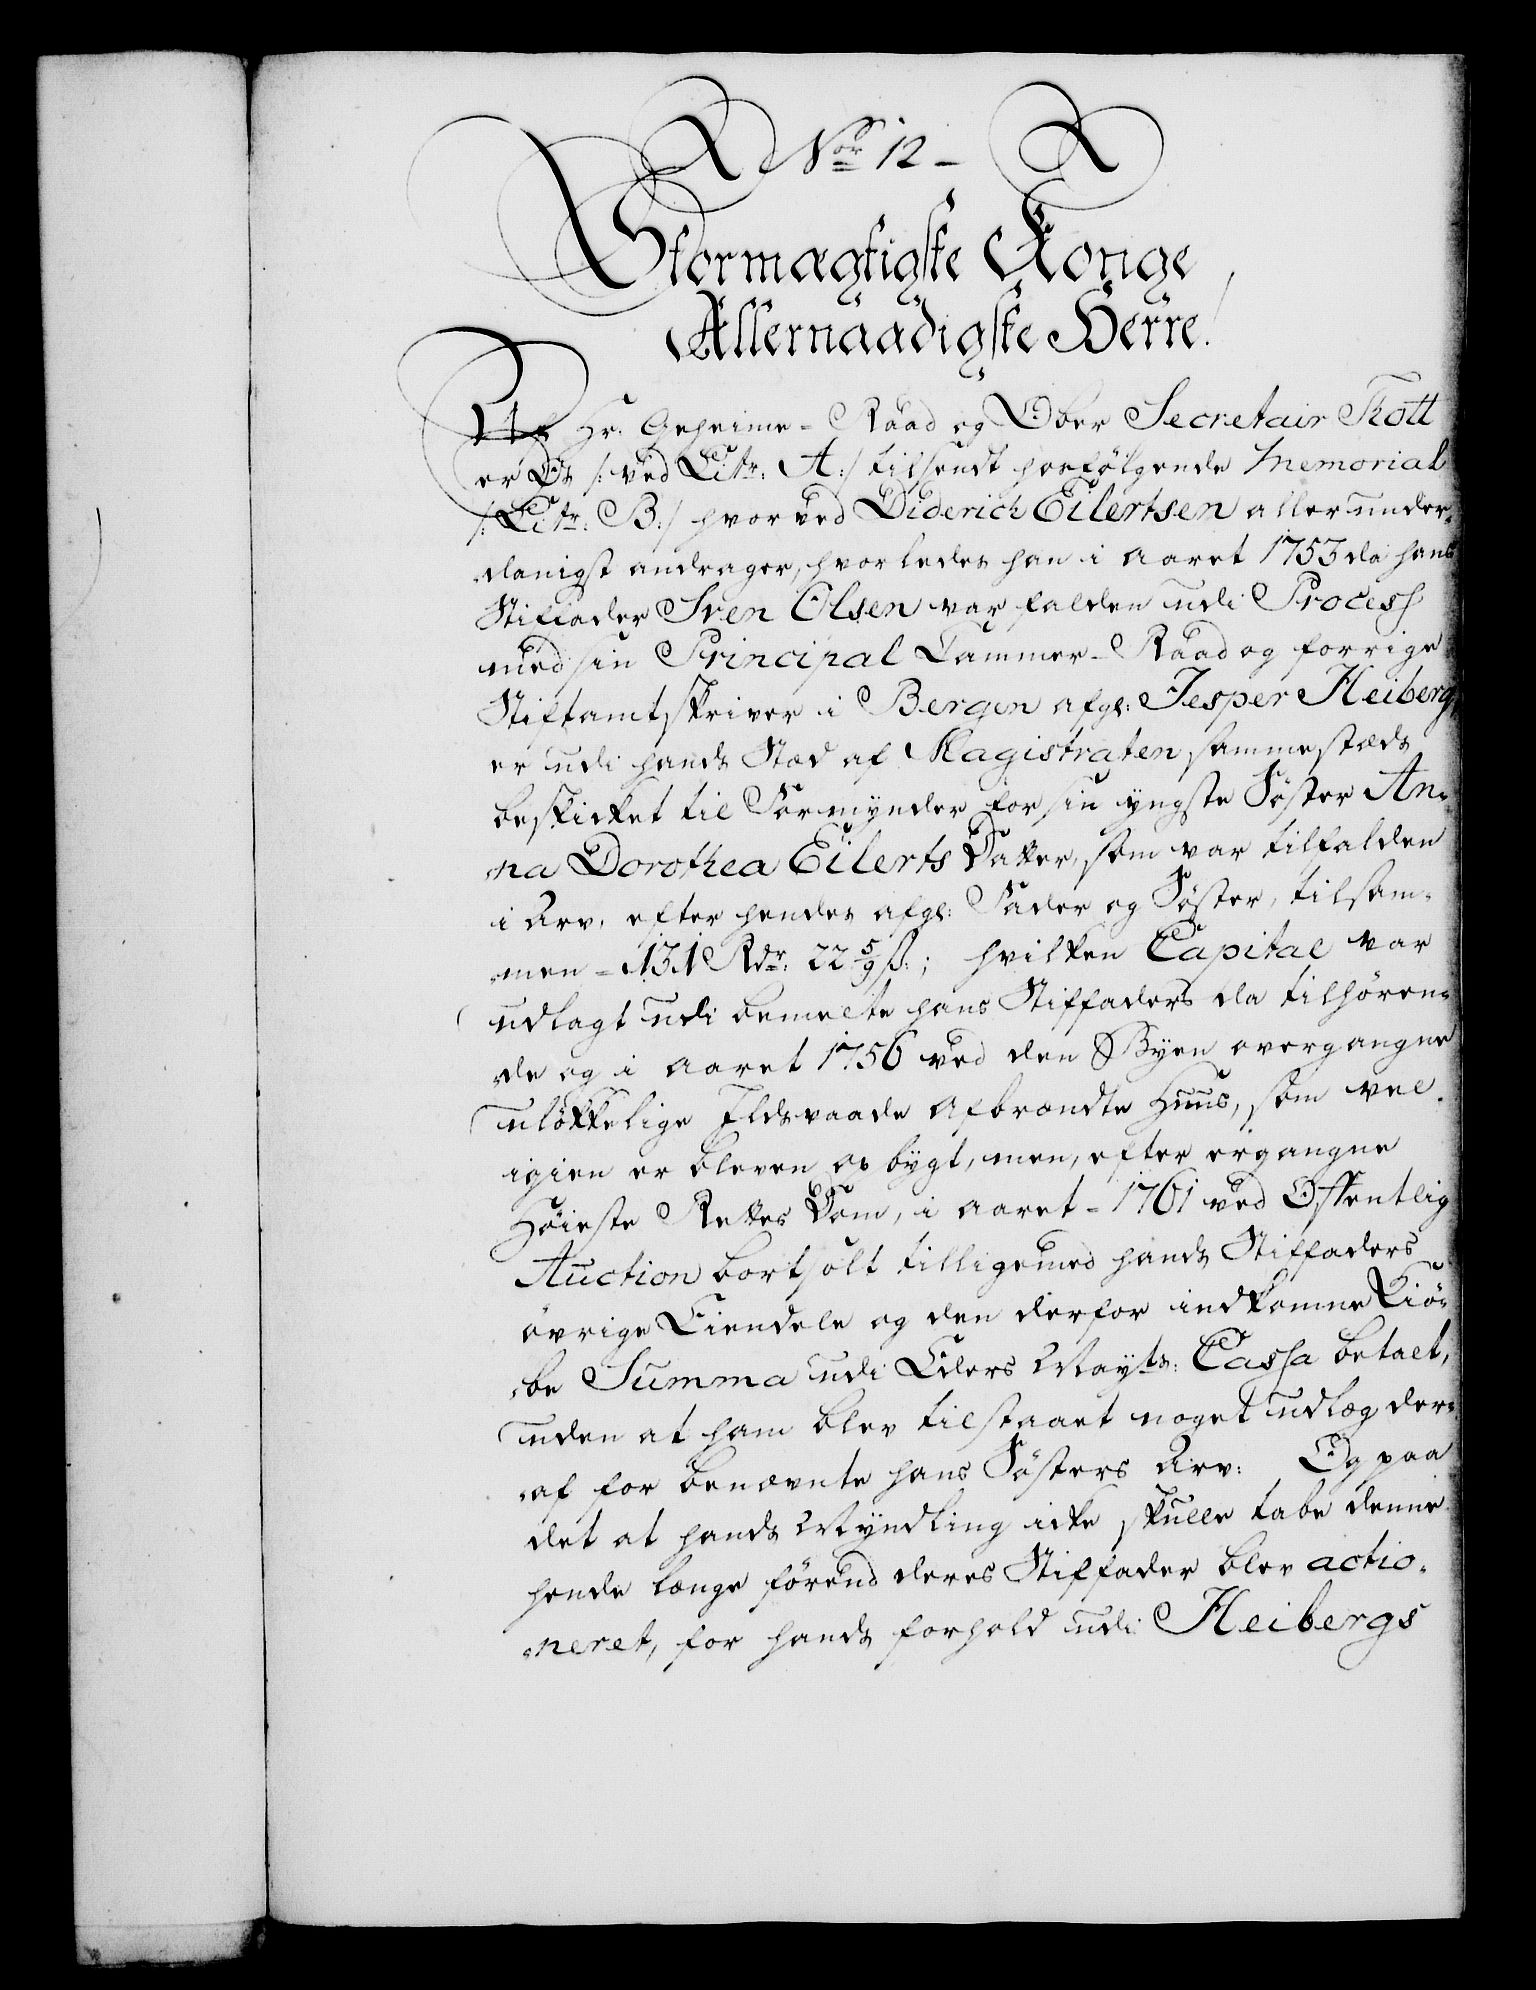 Nor 12 -
Stormægtigste Konge
Allernaadigste Herre!
Af Hr. Geheime-Raad og Ober Secretair Rott
er Os /: ved Litr: A:/ tilsendt hosfölgende Memorial
/: Litr: B:/ hvorved Diderich Eilertsen allerunder-
danigst andrager, hvorledes han i Aaret 1753 da hans
Stiffader Sven Olsen var falden udi Process
med sin Principal Cammer-Raad og forrige
Stiftamtskriver i Bergen afgl: Jesper Heiberg,
er udi hands Stæd af Magistraten sammestæds
beskikket til Formynder for sin yngste Söster An-
na Dorothea Eilerts Datter, som var tilfalden
i Arv, efter hendes afgl: Fader og Söster, tilsam-
men - 131 Rdr: 22 5/9 ß:; hvilken Capital var
udlagt udi bemelte hans Stiffaders da tilhören-
de og i Aaret 1756 ved den Byen overgangne
ulökkelige Ildsvaade afbrændte Huus, som vel
igien er bleven opbygt, men, efter ergangne
Höieste Rettes Dom, i Aaret - 1761 ved Offentlig
Auction bortsolt tilligemed hands Stiffaders
övrige Eiendele og den derfor indkomne Kiö-
be Summa udi Eders Mayts: Cassa betalt,
uden at ham blev tilstaaet noget udlæg der-
af for benævnte hans Sösters Arv: Og paa
det at hands Myndling icke skulle tabe denne
hende længe förend deres Stiffader blev actio-
neret, for hands forhold udi Heibergs